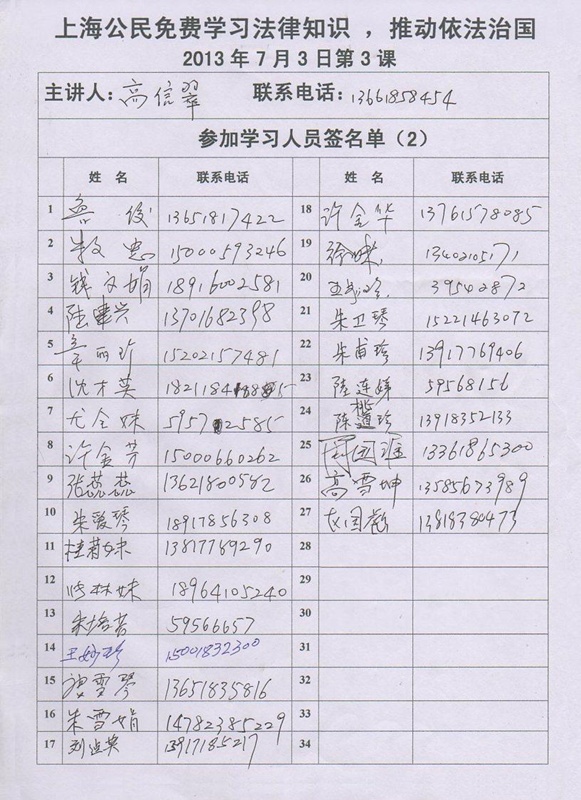 上海公民免费学习法律知识，推动依法治国
2013年7月3日第3课
主讲人：高信翠 联系电话：13661858454
参加学习人员签名单（2）
姓名 联系电话 姓名 联系电话
1 鲁俊 13651817422 18 许金华 13761578085
2 忠 15000593246 19 徐 13402105171
3 钱文娟 18916002581 20 39540872
4 陆建兴 13701682398 21 朱卫琴 15221463072
5 辛丽珍 15202157481 22 朱甫珍 13917769406
6 沈才英 23 陆连娣 59568156
7 尤全妹 24 陈珍 13918352133
8 许金芳 15000660262 25 周国雄 13361865300
9 张蕊蕊 13621800582 26 高雪坤 13585673989
10 朱爱琴 18917856308 27 13818380473
11 桂莉妹 13817769290 28
12 林妹 18964105240 29
13 朱培芳 59566657 30
14 王妙珍 15001832300 31
15 雪琴 13651835816 32
16 朱雪娟 14782385229 33
17 刘英 13917185217 34